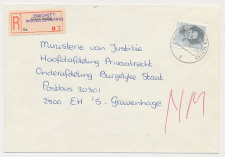 R
Enschedé
82
Ministerie van Justitie
Hoofdafdeling Privaatrecht
Onderafdeling Burgelijke Staat
Postbus 20301
2500 EH 's-Gravenhage